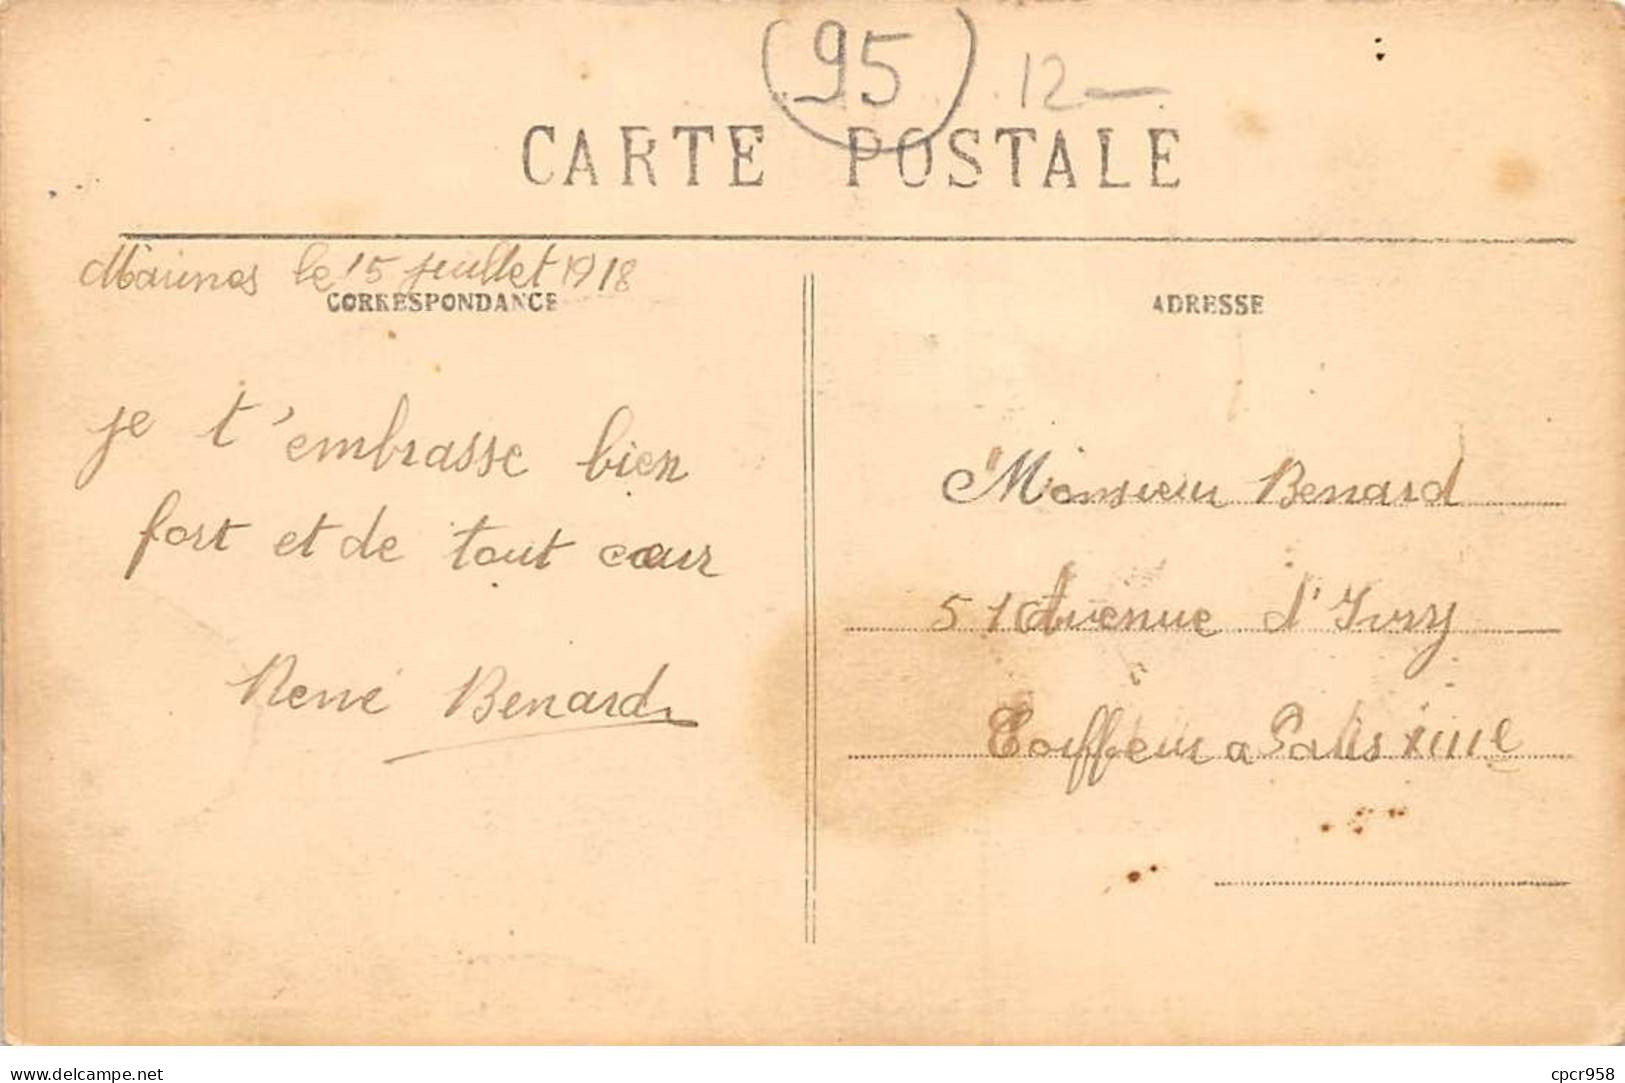 (95) 12—
CARTE POSTALE
Marines le 15 juillet 1918
CORRESPONDANCE
je t'embrasse bien
fort et de tout cœur
René Benard
ADRESSE
Monsieur Benard
51 Avenue d'Ivry
Coiffeur a Paris XIIIe
www.delcampe.net
cpcr958